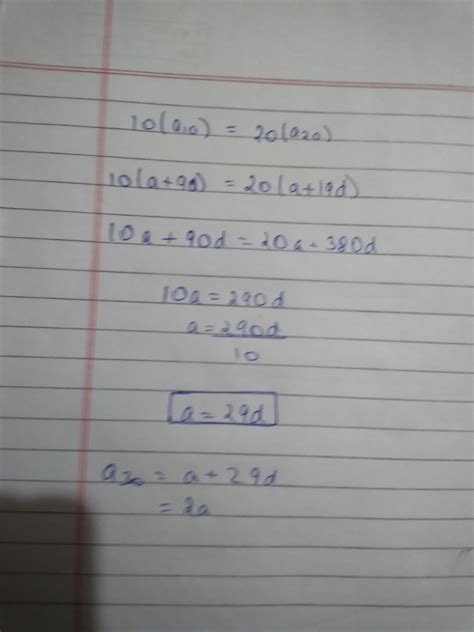 10(a₁₀) = 20(a₂₀)
10(a+9d) = 20(a+19d)
10a + 90d = 20a + 380d
10a = 290d
a = 290d
10
a = 29d
a₃₀ = a + 29d
= 2a